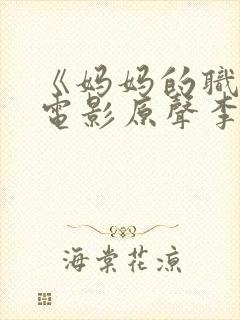 《妈妈的職
電影原聲李
海棠花凉